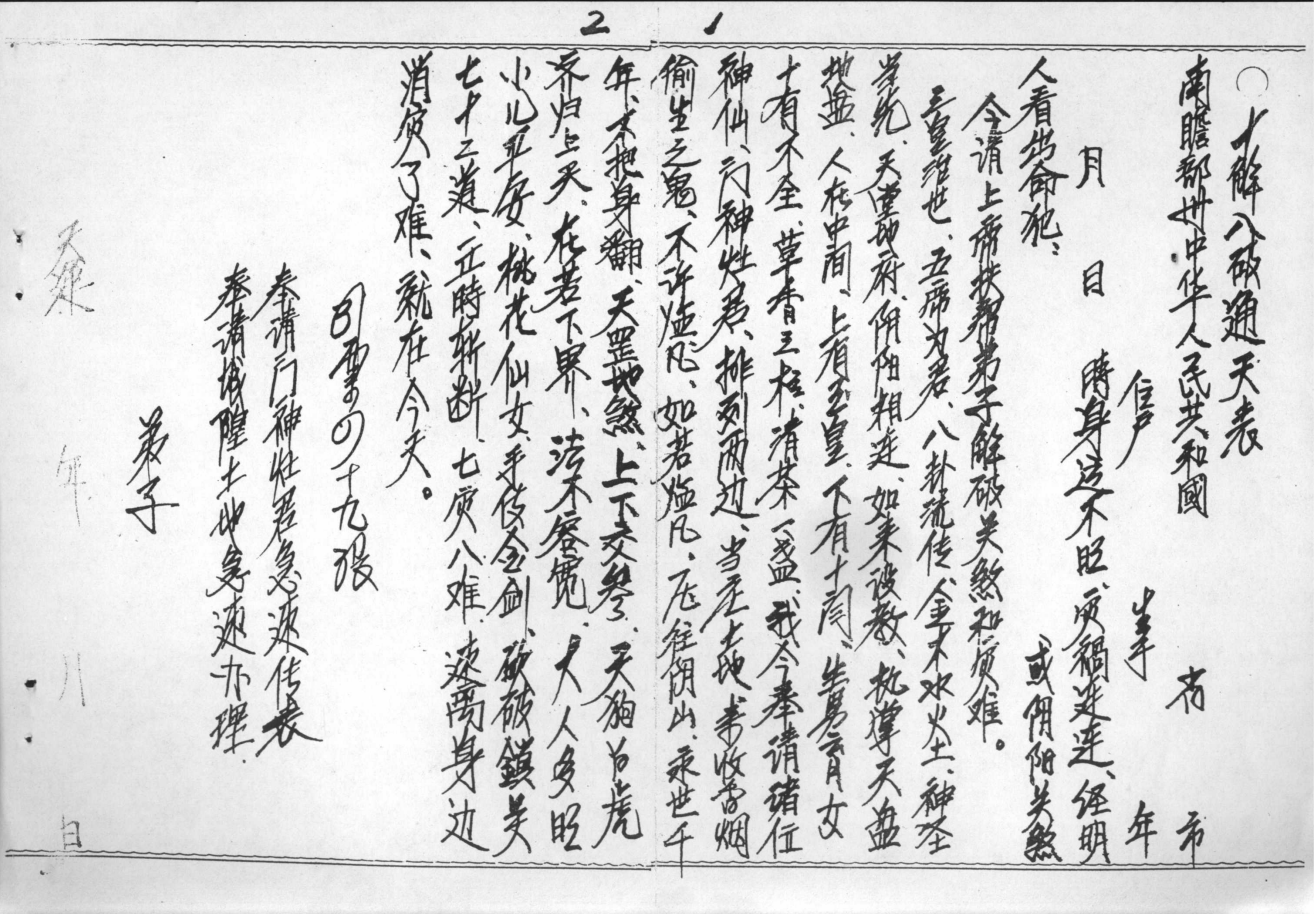 1
2
十解八破通天表
南瞻部卅中华人民共和國 省 市
住戶 生于 年
月 日 時身边不旺、灾禍连连、经明
人看出命犯: 或阴阳关煞
今请上帝扶帮弟子解破关煞和灾难。
三皇治世、五帝为君、八卦流传、金木水火土、神圣
当先、天堂地府、阴阳相连、如来设教、执掌天盘
地盘、人在中间、上有玉皇、下有十閰、生男育女
十有不全、草香三柱、清茶一盏、我今奉請诸位
神仙、门神灶君、排列两边、当庄土地来收香烟
偷生之鬼、不许临凡、如若临凡、压往阴山、永世千
年、不把身翻、天罡地煞、上下交参、天狗白虎
齐归上天、在若下界、法不容宽、大人多旺
小儿平安、桃花仙女、手传金剑、砍破鎖关
七十二道、立時斩断、七灾八难、速离身边
消灾了难、就在今天。
十九
奉请门神灶君急速传表
奉请城隍土地急速办理.
弟子
天運 年 月 日